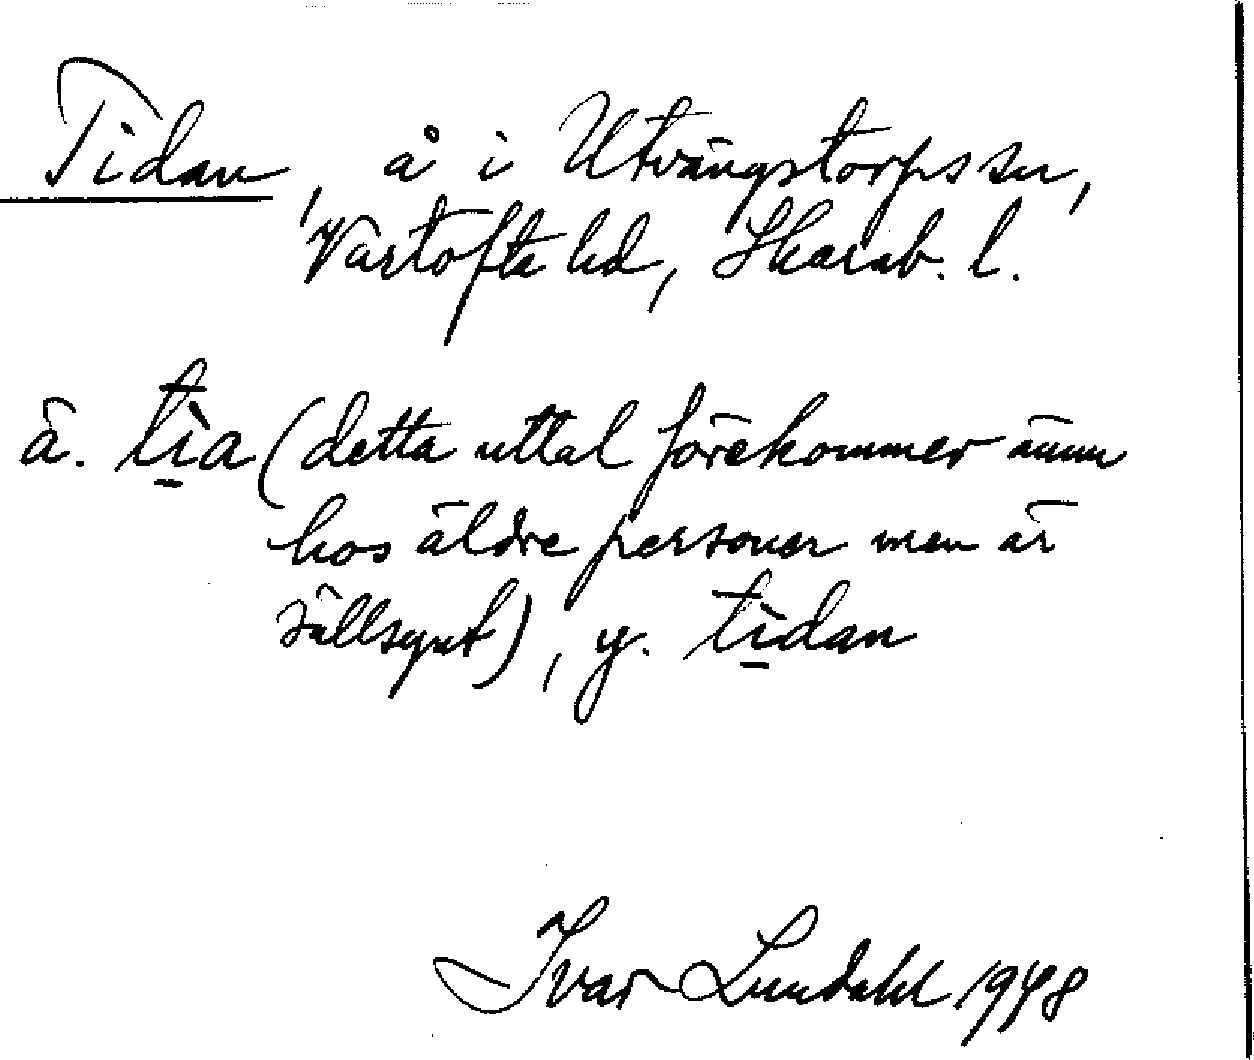 Tidan, å i Utvängstorps sn,
Vartofta hd, Skarab. l.
ä. tìa (detta uttal förekommer ännu
hos äldre personer men är
sällsynt), y. tìdan
Ivar Lundahl 1948